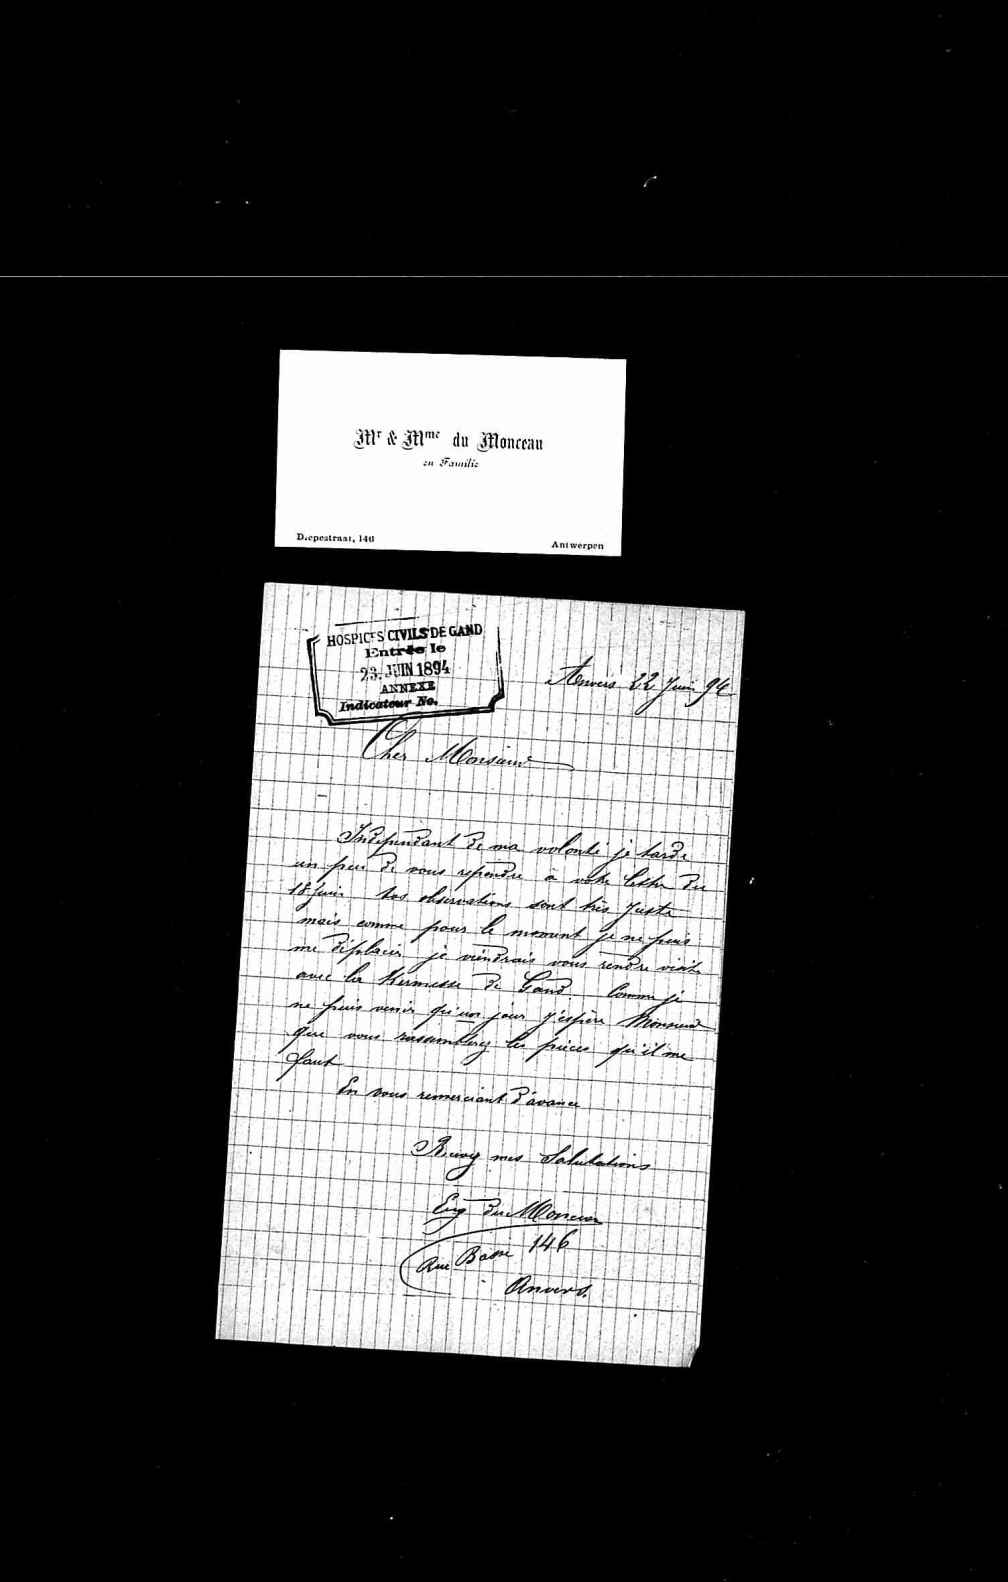 Mr & Mme du Monceau
en Famille
Diepestraat, 146
Antwerpen
HOSPICES CIVILS DE GAND
Entrée le
23. JUIN 1894
ANNEXE
Indicateur No.
Anvers 22 Juin 94
Cher Monsieur
Independant de ma volonté je tarde
un peu de vous repondre à votre lettre du
18 juin Vos observations sont très juste
mais comme pour le moment je ne puis
me déplacer je viendrais vous rendre visite
avec la Kermesse de Gand. Comme je
ne puis venir qu'un jour j'espère Monsieur
que vous rassemblerez les pièces qu'il me
faut
En vous remerciant d'avance
Recevez mes Salutations
Eug du Monceau
Rue Basse 146
Anvers.